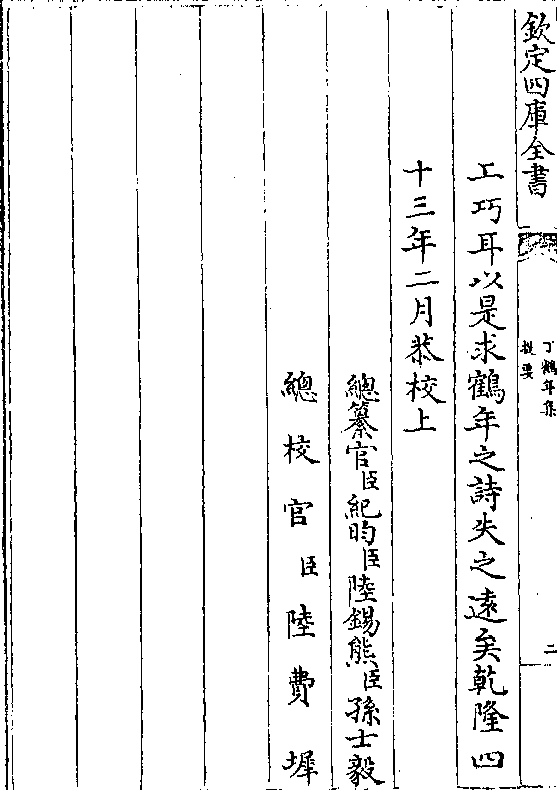 欽定四庫全書
丁鶴年集
提要
二
工巧耳以是求鶴年之詩失之遠矣乾隆四
十三年二月恭校上
總纂官臣紀昀臣陸錫熊臣孫士毅
總校官臣陸費墀